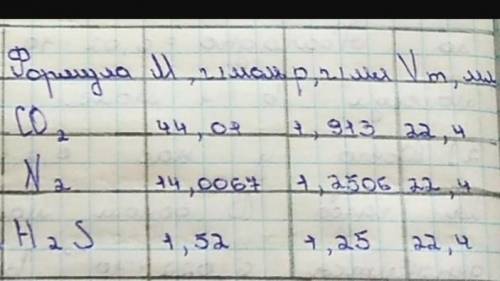 Формула М, г/моль ρ, г/мл Vm, мл
CO2 44,01 1,913 22,4
N2 14,0067 1,2506 22,4
H2S 1,52 1,25 22,4